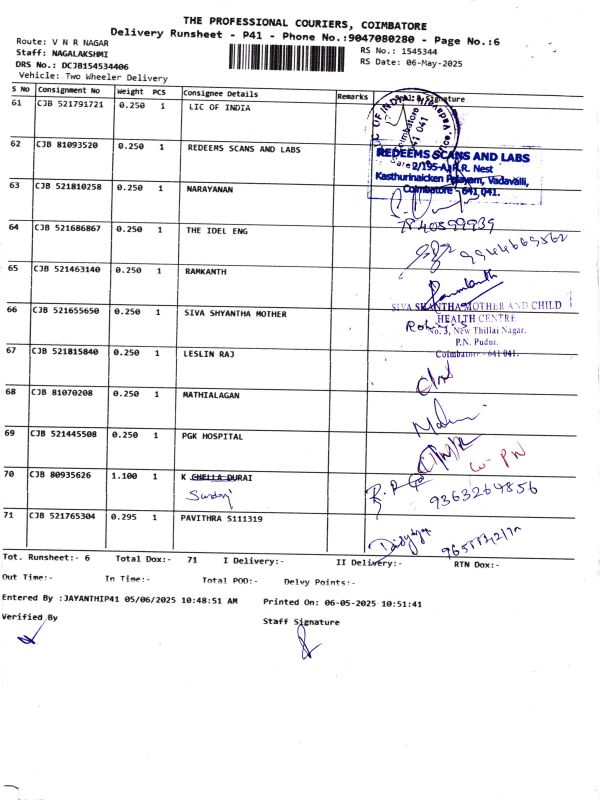 THE PROFESSIONAL COURIERS, COIMBATORE
Delivery Runsheet - P41 - Phone No.:9047080280 - Page No.:6
Route: V N R NAGAR
Staff: NAGALAKSHMI
DRS No.: DCJB154534406
Vehicle: Two Wheeler Delivery
RS No.: 1545344
RS Date: 06-May-2025
S No Consignment No Weight PCS Consignee Details Remarks Signature
61 CJB 521791721 0.250 1 LIC OF INDIA
62 CJB 81093520 0.250 1 REDEEMS SCANS AND LABS
REDEEMS SCANS AND LABS
2/195-A, R.R. Nest
Kasthurinaicken Palayam, Vadavalli,
Coimbatore - 641 041.
63 CJB 521810258 0.250 1 NARAYANAN
64 CJB 521686867 0.250 1 THE IDEL ENG
65 CJB 521463140 0.250 1 RAMKANTH
Ramkanth
66 CJB 521655650 0.250 1 SIVA SHYANTHA MOTHER
SIVA SHANTHA MOTHER AND CHILD
HEALTH CENTRE
No. 3, New Thillai Nagar,
P.N. Pudur,
Coimbatore - 641 041.
67 CJB 521815840 0.250 1 LESLIN RAJ
68 CJB 81070208 0.250 1 MATHIALAGAN
69 CJB 521445508 0.250 1 PGK HOSPITAL
70 CJB 80935626 1.100 1 K CHELLA DURAI
9363264856
71 CJB 521765304 0.295 1 PAVITHRA S111319
Tot. Runsheet:- 6 Total Dox:- 71 I Delivery:- II Delivery:- RTN Dox:-
Out Time:- In Time:- Total POD:- Delvy Points:-
Entered By :JAYANTHIP41 05/06/2025 10:48:51 AM Printed On: 06-05-2025 10:51:41
Verified By Staff Signature